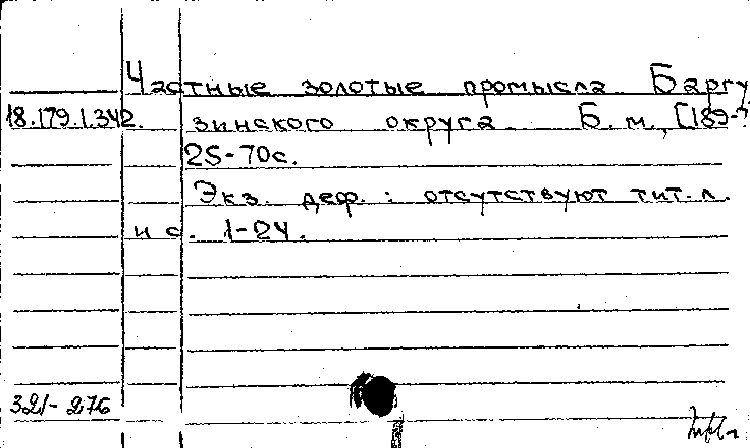 Частные золотые промысла Баргу
18.179.1.342. зинского округа Б.м., [189-?
25-70с.
Экз. деф.: отсутствуют тит.л.
и с. 1-24.
321-276